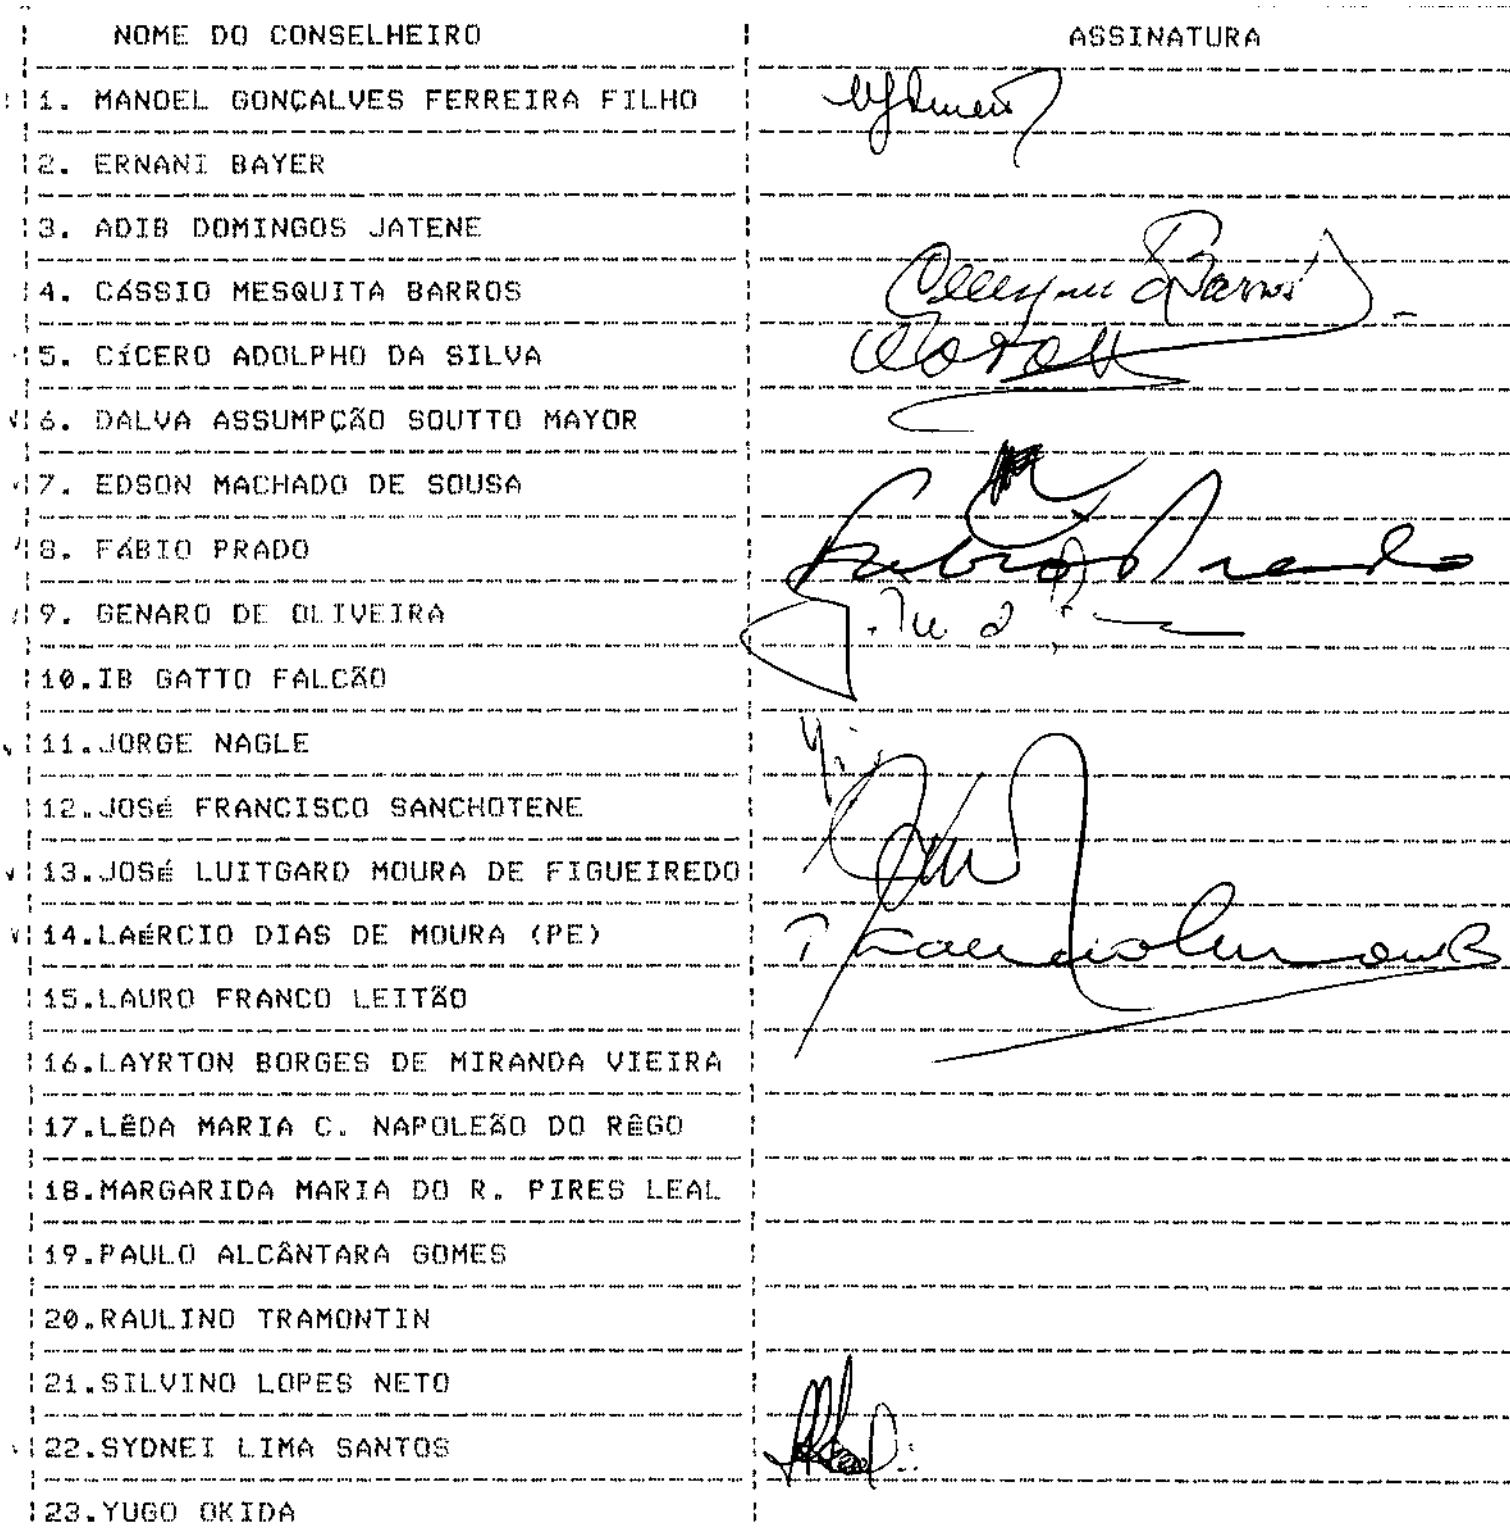 NOME DO CONSELHEIRO ASSINATURA
1. MANOEL GONÇALVES FERREIRA FILHO
2. ERNANI BAYER
3. ADIB DOMINGOS JATENE
4. CÁSSIO MESQUITA BARROS
5. CÍCERO ADOLPHO DA SILVA
6. DALVA ASSUMPÇÃO SOUTTO MAYOR
7. EDSON MACHADO DE SOUSA
8. FÁBIO PRADO Fabio Prado
9. GENARO DE OLIVEIRA
10.IB GATTO FALCÃO
11.JORGE NAGLE
12.JOSÉ FRANCISCO SANCHOTENE
13.JOSÉ LUITGARD MOURA DE FIGUEIREDO
14.LAÉRCIO DIAS DE MOURA (PE)
15.LAURO FRANCO LEITÃO
16.LAYRTON BORGES DE MIRANDA VIEIRA
17.LÊDA MARIA C. NAPOLEÃO DO RÊGO
18.MARGARIDA MARIA DO R. PIRES LEAL
19.PAULO ALCÂNTARA GOMES
20.RAULINO TRAMONTIN
21.SILVINO LOPES NETO
22.SYDNEI LIMA SANTOS
23.YUGO OKIDA